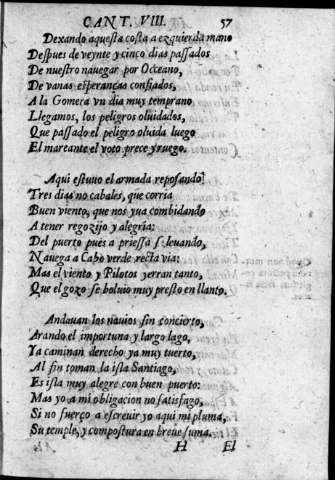 CANT. VIII. 57
Dexando aquesta costa a ezquierda mano
Despues de veynte y cinco dias passados
De nuestro nauegar por Oceano,
De vanas esperanças confiados,
A la Gomera vn dia muy temprano
Llegamos, los peligros oluidados,
Que passado el peligro oluida luego
El mareante el voto prece y ruego.
Aqui estuuo el armada reposando
Tres dias no cabales, que corria
Buen viento, que nos yua combidando
A tener regozijo y alegria:
Del puerto pues a priessa leuando,
Nauega a Cabo verde recta via:
Mas el viento y Pilotos yerran tanto,
Que el gozo se boluio muy presto en llanto.
Andauan los nauios sin concierto,
Arando el importuna y largo lago,
Ya caminan derecho ya muy tuerto,
Al fin toman la isla Santiago,
Es isla muy alegre con buen puerto:
Mas yo a mi obligacion no satisfago,
Si no fuerço a escreuir yo aqui mi pluma,
Su temple, y compostura en breue suma.
H El